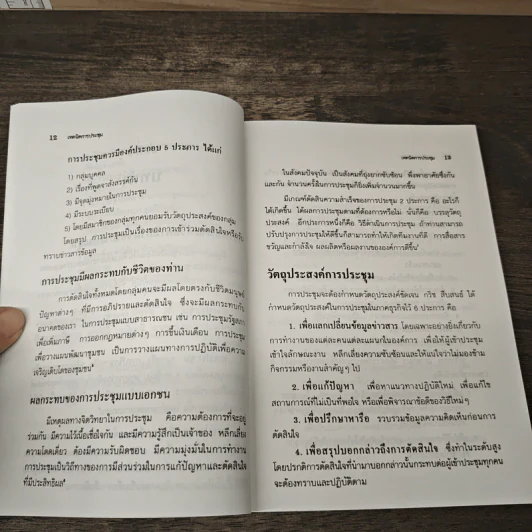 12 เทคนิคการประชุม
การประชุมควรมีองค์ประกอบ 5 ประการ ได้แก่
1) กลุ่มบุคคล
2) เรื่องที่พูดจาสังสรรค์กัน
3) มีจุดมุ่งหมายในการประชุม
4) มีระบบระเบียบ
5) โดยมีสมาชิกของกลุ่มทุกคนยอมรับวัตถุประสงค์ของกลุ่ม
โดยสรุป การประชุมเป็นเรื่องของการเข้าร่วมตัดสินใจหรือรับ
ทราบข่าวสารข้อมูล
การประชุมมีผลกระทบกับชีวิตของท่าน
การตัดสินใจทั้งหมดโดยกลุ่มคนจะมีผลโดยตรงกับชีวิตมนุษย์
ปัญหาต่างๆ ที่มีการอภิปรายและตัดสินใจ ซึ่งจะมีผลกระทบกับ
อนาคตของเรา ในการประชุมแบบสาธารณชน เช่น การประชุมรัฐสภา
เพื่อเพิ่มภาษี การออกกฎหมายต่างๆ การขึ้นเงินเดือน การประชุม
เพื่อวางแผนพัฒนาชุมชน เป็นการวางแผนทางการปฏิบัติเพื่อความ
เจริญเติบโตของชุมชน
ผลกระทบของการประชุมแบบเอกชน
มีเหตุผลทางจิตวิทยาในการประชุม คือความต้องการที่จะอยู่
ร่วมกัน มีความไว้เนื้อเชื่อใจกัน และมีความรู้สึกเป็นเจ้าของ หลีกเลี่ยง
ความโดดเดี่ยว ต้องมีความรับผิดชอบ มีความมุ่งมั่นในการทำงาน
การประชุมเป็นวิธีทางของการมีส่วนร่วมในการแก้ปัญหาและตัดสินใจ
ที่มีประสิทธิผล
เทคนิคการประชุม 13
ในสังคมปัจจุบัน เป็นสังคมที่ยุ่งยากซับซ้อน พึ่งพาอาศัยซึ่งกัน
และกัน จำนวนครั้งในการประชุมก็ยิ่งเพิ่มจำนวนมากขึ้น
มีเกณฑ์ตัดสินความสำเร็จของการประชุม 2 ประการ คือ อะไรที่
ได้เกิดขึ้น ได้ผลการประชุมตามที่ต้องการหรือไม่ นั่นก็คือ บรรลุวัตถุ
ประสงค์ อีกประการหนึ่งก็คือ วิธีดำเนินการประชุม ถ้าท่านสามารถ
ปรับปรุงการประชุมให้ดีขึ้นก็สามารถทำให้เกิดทีมงานที่ดี การสื่อสาร
ขวัญและกำลังใจ ผลผลิตหรือผลงานขององค์การก็ดีขึ้น
วัตถุประสงค์การประชุม
การประชุมจะต้องกำหนดวัตถุประสงค์ชัดเจน กริช สืบสนธ์ ได้
กำหนดวัตถุประสงค์ในการประชุมในภาคธุรกิจไว้ 6 ประการ คือ
1. เพื่อแลกเปลี่ยนข้อมูลข่าวสาร โดยเฉพาะอย่างยิ่งเกี่ยวกับ
การทำงานของแต่ละคนแต่ละแผนกในองค์การ เพื่อให้ผู้เข้าประชุม
เข้าใจลักษณะงาน หลีกเลี่ยงความซับซ้อนและให้แน่ใจว่าไม่มองข้าม
กิจกรรมหรืองานสำคัญๆ ไป
2. เพื่อแก้ปัญหา เพื่อหาแนวทางปฏิบัติใหม่ เพื่อแก้ไข
สถานการณ์ที่ไม่เป็นที่พอใจ หรือเพื่อพิจารณาข้อดีของวิธีใหม่ๆ
3. เพื่อปรึกษาหารือ รวบรวมข้อมูลความคิดเห็นก่อนการ
ตัดสินใจ
4. เพื่อสรุปบอกกล่าวถึงการตัดสินใจ ซึ่งทำในระดับสูง
โดยปรกติการตัดสินใจที่นำมาบอกกล่าวนั้นกระทบต่อผู้เข้าประชุมทุกคน
จะต้องทราบและปฏิบัติตาม